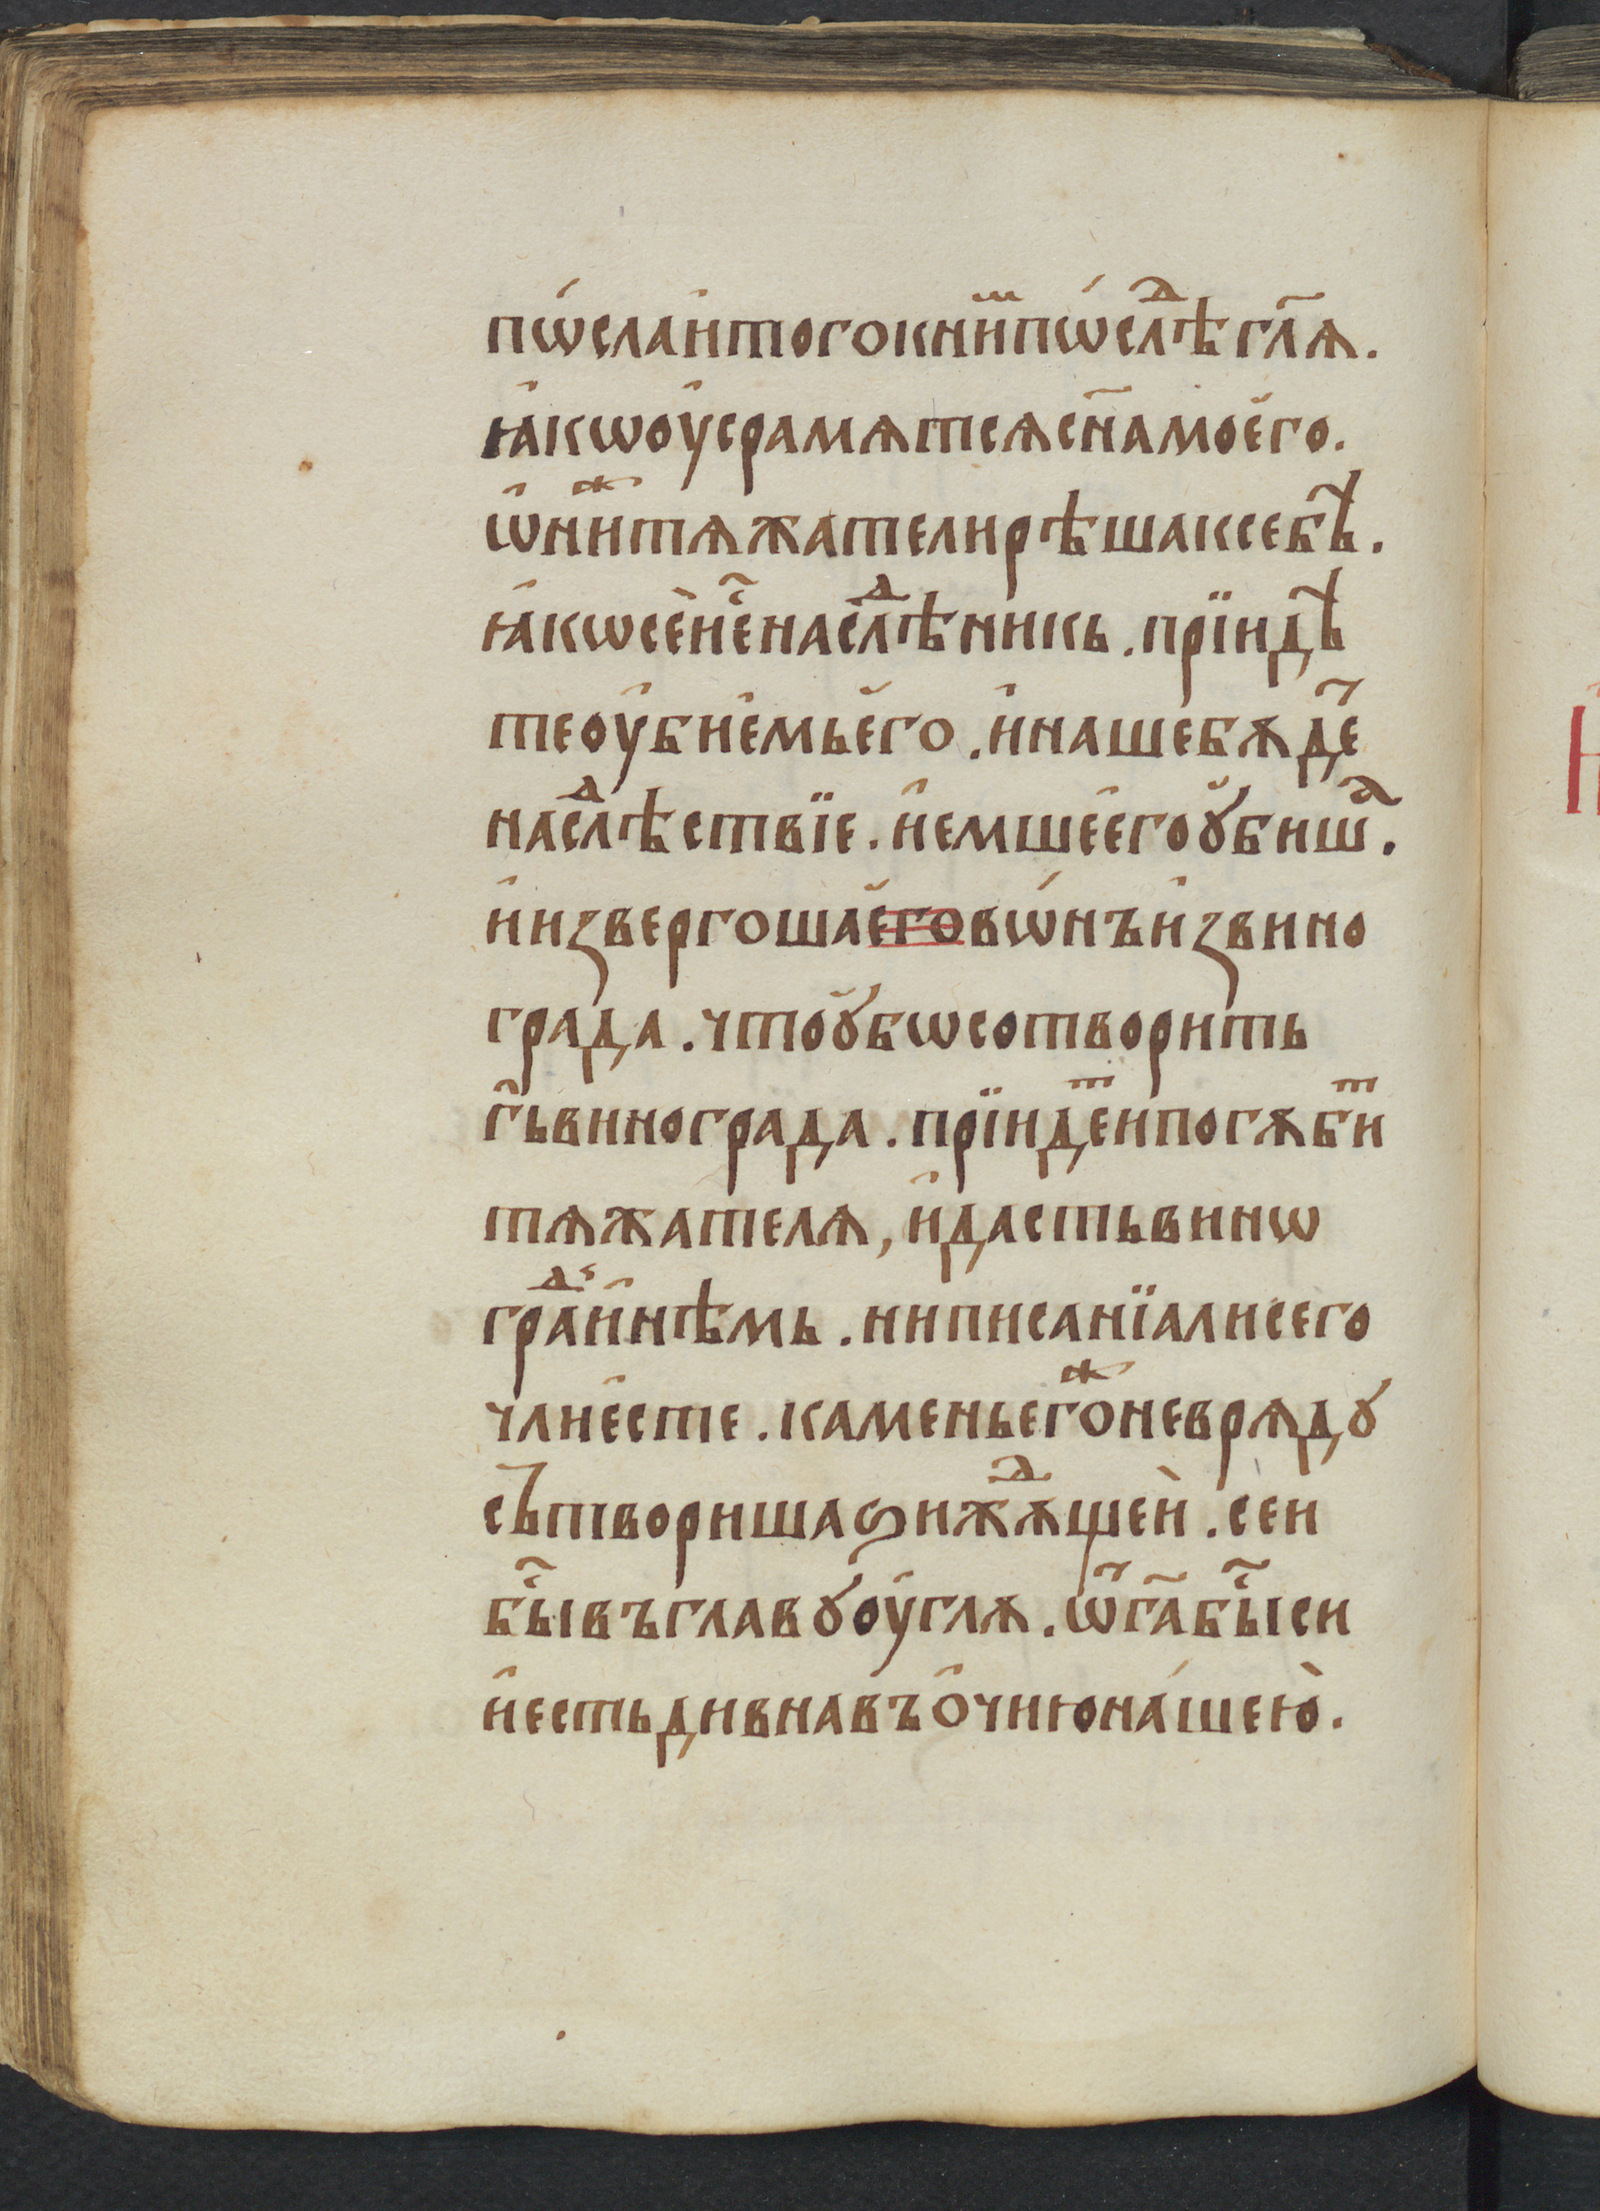 пѡ́сла и҆ того к ни ⷨ пѡ́слⷣѣ гл҃ѧ.
ꙗ҆кѡ ᲂу҆срамѧтсѧ сн҃а моєго̆.
ѡ҆ниⷤ тѧжатели рѣша к себѣ̾.
ꙗ҆кѡ сеѝ єс҃ насл́ⷣѣникь. прїидѣ̾
те ᲂу҆бїемь єго̆. и҆ наше бѫде҃
наслⷣѣствїе. и҆ емше є҆го ꙋ̆биш̾ⷶ.
и҆ извергоша є̆го вѡ́нъ и҆з вино
града. что ꙋ̆бѡ сотворить
г҃ь винограда. прїидеⷮ и погѫбиⷮ
тѧжателѧ, и҆ дасть вино
граⷣ и҆нѣмь. ни писанїа ли сего
чли є҆сте. камень єгоⷤ не врѧдꙋ
сътвориша ѕижⷣѫщеѝ. сеи
быс҃ въ главꙋ ᲂу҆глѧ. ѿ г҃а быс҃ си
и҆ есть дивна въ ѻ҆чию на́шею̀.